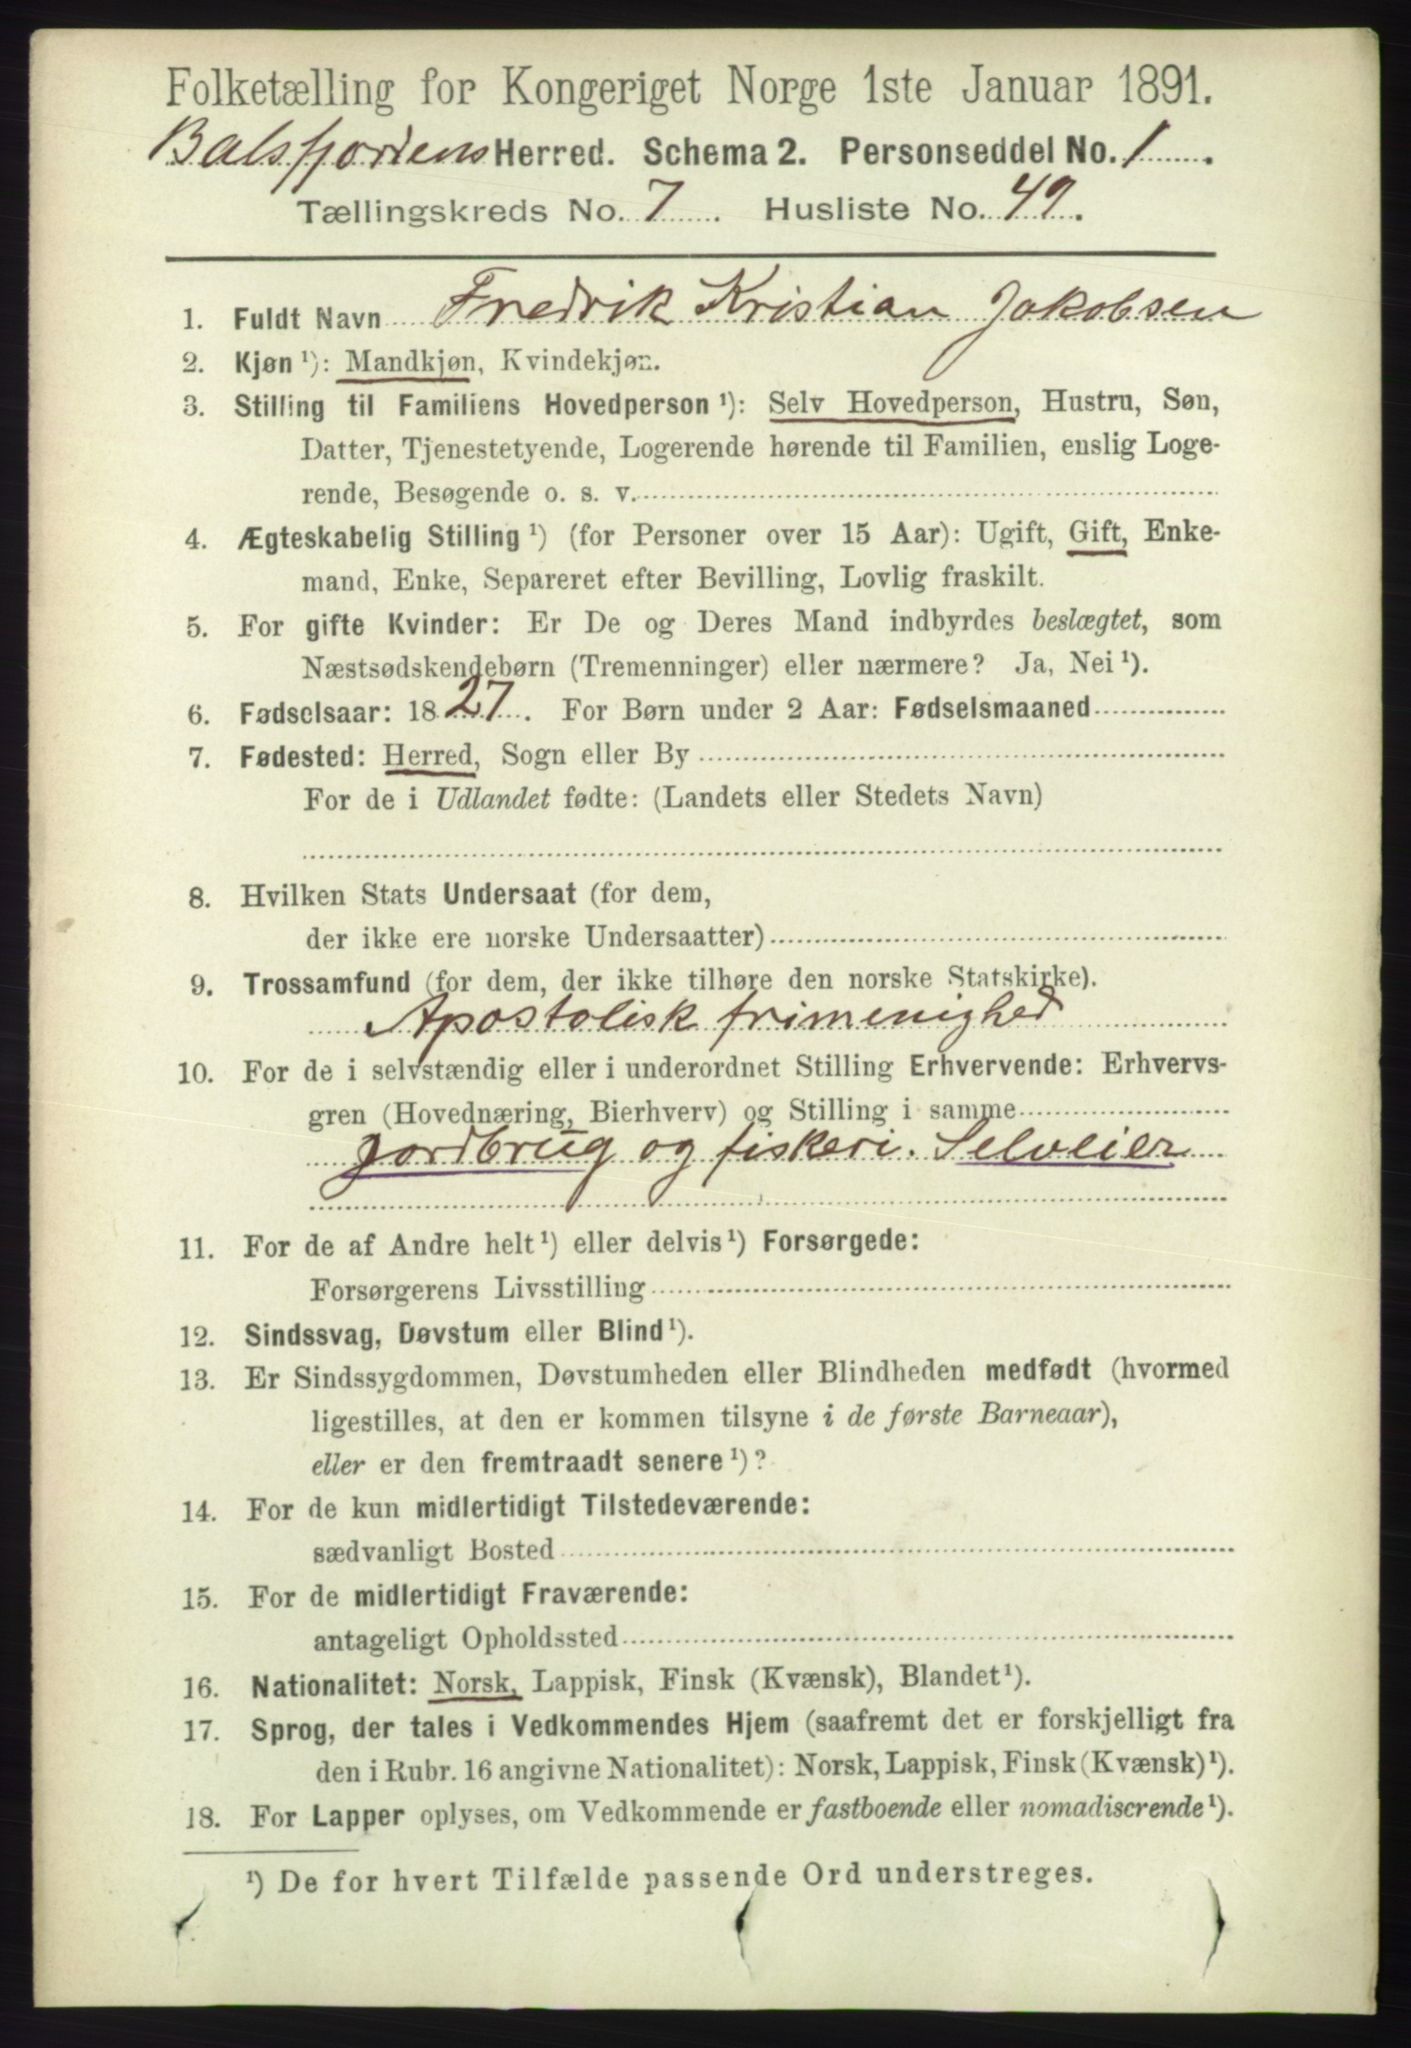 Folketælling for Kongeriget Norge 1ste Januar 1891.
Balsfjordens Herred. Schema 2. Personseddel No. 1
Tællingskreds No. 7 Husliste No. 49.
1. Fuldt Navn Fredrik Kristian Jakobsen
2. Kjøn ¹): Mandkjøn, Kvindekjøn.
3. Stilling til Familiens Hovedperson ¹): Selv Hovedperson, Hustru, Søn,
Datter, Tjenestetyende, Logerende hørende til Familien, enslig Loge-
rende, Besøgende o. s. v.
4. Ægteskabelig Stilling ¹) (for Personer over 15 Aar): Ugift, Gift, Enke-
mand, Enke, Separeret efter Bevilling, Lovlig fraskilt.
5. For gifte Kvinder: Er De og Deres Mand indbyrdes beslægtet, som
Næstsødskendebørn (Tremenninger) eller nærmere? Ja, Nei ¹).
6. Fødselsaar: 1827. For Børn under 2 Aar: Fødselsmaaned
7. Fødested: Herred, Sogn eller By
For de i Udlandet fødte: (Landets eller Stedets Navn)
8. Hvilken Stats Undersaat (for dem,
der ikke ere norske Undersaatter)
9. Trossamfund (for dem, der ikke tilhøre den norske Statskirke).
Apostolisk frimenighed
10. For de i selvstændig eller i underordnet Stilling Erhvervende: Erhvervs-
gren (Hovednæring, Bierhverv) og Stilling i samme
jordbrug og fiskeri. Selveier
11. For de af Andre helt ¹) eller delvis ¹) Forsørgede:
Forsørgerens Livsstilling
12. Sindssvag, Døvstum eller Blind ¹).
13. Er Sindssygdommen, Døvstumheden eller Blindheden medfødt (hvormed
ligestilles, at den er kommen tilsyne i de første Barneaar),
eller er den fremtraadt senere ¹)?
14. For de kun midlertidigt Tilstedeværende:
sædvanligt Bosted
15. For de midlertidigt Fraværende:
antageligt Opholdssted
16. Nationalitet: Norsk, Lappisk, Finsk (Kvænsk), Blandet ¹).
17. Sprog, der tales i Vedkommendes Hjem (saafremt det er forskjelligt fra
den i Rubr. 16 angivne Nationalitet): Norsk, Lappisk, Finsk (Kvænsk) ¹).
18. For Lapper oplyses, om Vedkommende er fastboende eller nomadiserende ¹).
¹) De for hvert Tilfælde passende Ord understreges.